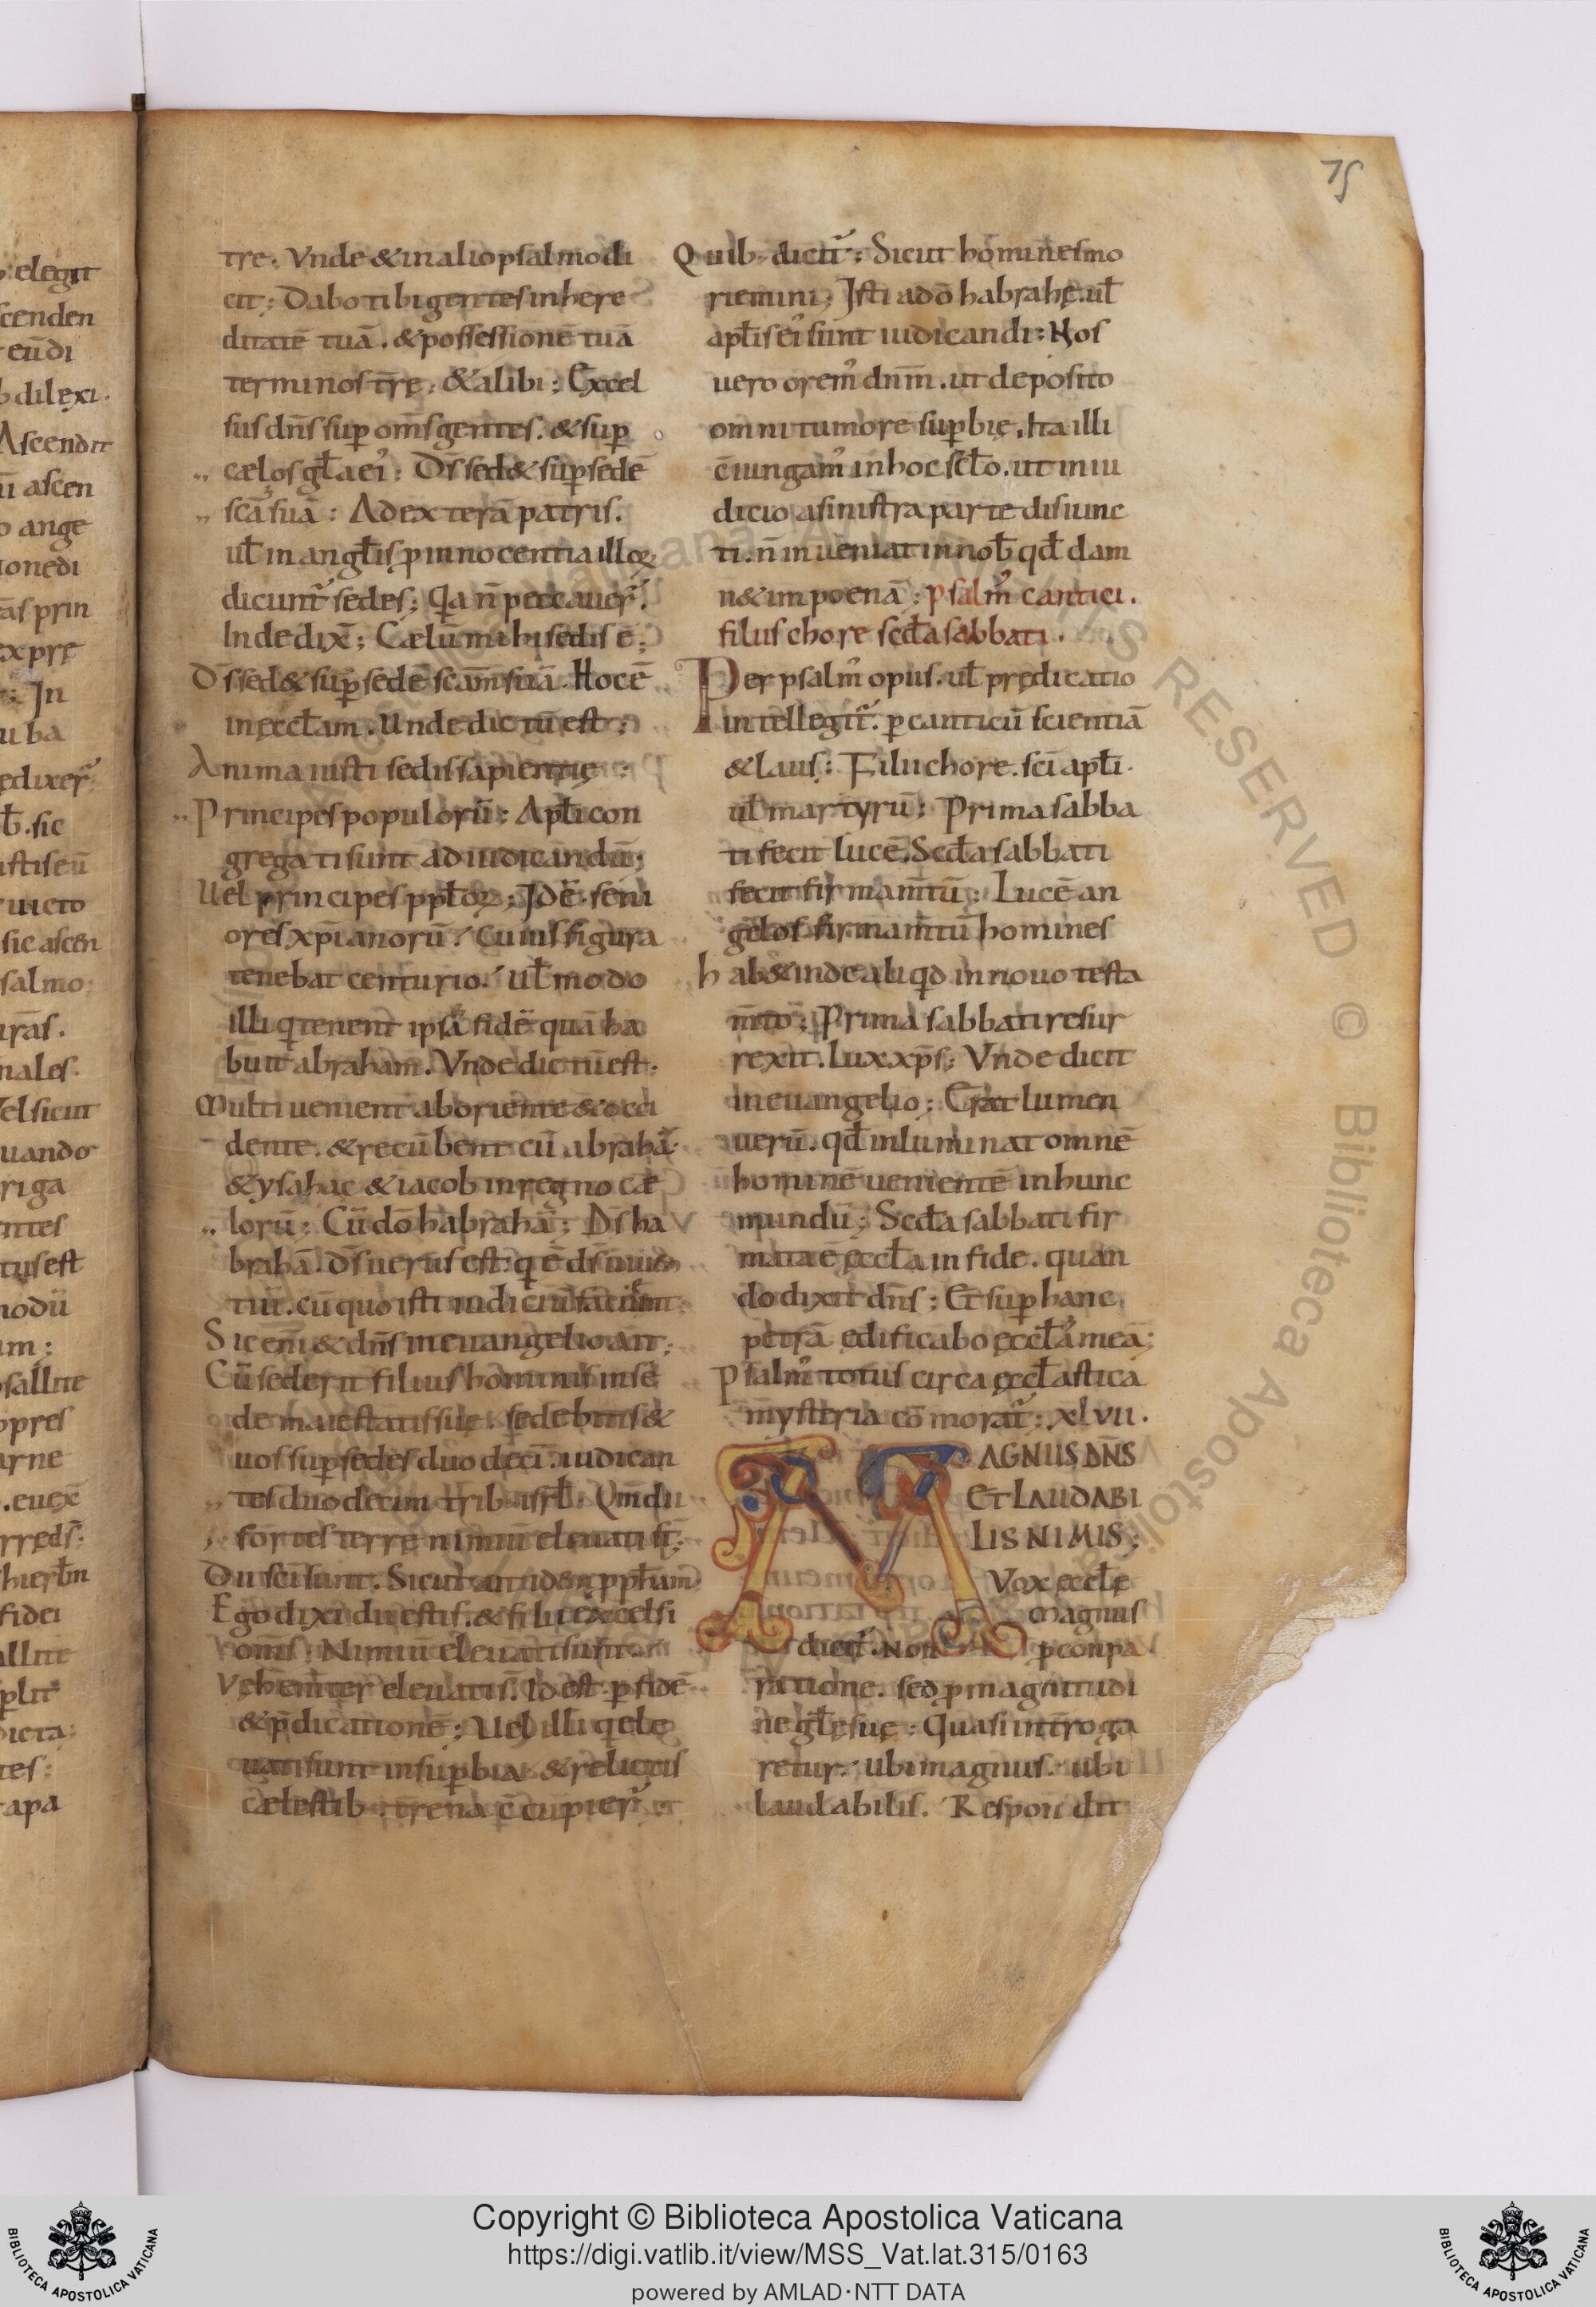 75
elegit
cenden
t eūdi
b dilexi.
Ascendit
ūi ascen
o ange
ionedi
ās prin
ex prę
: In
u ba
edixer̃
b̄. sic
uicto
sic ascen
salmo;
uras.
nales.
Vel sicut
uando
riga
entes
tus est
modū
um :
psallite
pres
arne
. euex̄
hierłm
fidei
allite
dicta;
tes :
tapa
tre. Vnde & in alio psalmo di
cit; Dabo tibi gentes in here
ditatē tuā . & possessionē tuā
terminos tr̄ę . & alibi : Excel
sus dn̄s sup om̄s gentes . & sup
cælos gła ei' : D̄s sed& sup sedē
scā suā : Ad exterā patris .
uł in angłis p innocentia illoꝝ
dicunt̃ sedes; Qa n̄ peccauer̃ .
Inde dix̄; Cælū mihi sedis ē ;
D̄s sed& sup sedē scām suā . Hoc ē
in ęccłam . Unde dictū est ;
Anima iusti sedis sapientię :
Principes populorū : Apłi con
gregati sunt ad iudicandū ;
Uel principes ppłoꝝ ; Idē . seni
ores xp̄ianorū . Cuius figura
tenebat centurio . uł modo
illi q tenent ipsā fidē quā ha
buit abraham . Vnde dictū est .
Multi uenient ab oriente & occi
dente . & recūbent cū abrahā .
& ysahac & iacob in regno cæ
lorū ; Cū dō habrahā ; D̄s ha
brahā . d̄s uerus est . q ē d̄s uiuo
tū . cū quo isti iudiciū facient
Sic enī & dn̄s in euangelio ait ;
Cū sederit filius hominis in se
de maiestatis suę . sedebitis &
uos sup sedes duodecī . iudican
tes duodecim trib isrł . Qm̄ dii
fortes terre nimiū eleuati st̄ ;
Dii sc̄i sunt . Sicut
Ego dixi dii estis . & filii excelsi
om̄s ; Nimiū eleuati sunt .
Vehem̄ter eleuati s̄ . Id est . p fidē
& p̄dicationē ; Uel illi q ele
uati sunt in supbia & relictis
cælestib . trena ccupier̃ .
Quib dicit̃ ; Sicut homines mo
riemini ; Isti a dō habrahę . uł
apłis ei' sunt iudicandi : Nos
uero orem' dn̄m . ut deposito
omni tumore supbię . Ita illi
c̄iungam' in hoc scło . ut in iu
dicio a sinistra parte disiunc
ti . n̄ inueniat in nob̄ qđ dam
n& im poenā ; psalm' cantici .
filius chore scđa sabbati .
Per psalm' opus . uł prędicatio
intellegit̃ . p canticū scientiā
& laus ; Filii chore . sc̄i apłi .
uł martyrū ; Prima sabba
ti fecit lucē . Scđa sabbati
fecit firmam̄tū ; Lucē an
gelos firmam̄tū homines
hab& inde aliqđ in nouo testa
m̄to ; Prima sabbati resur
rexit . lux xp̄s ; Vnde dicit
in euangelio ; Erat lumen
uerū . qđ inluminat omnē
hominē uenientē in hunc
mundū ; Scđa sabbati fir
mata ē ęccła in fide . quan
do dixit dn̄s ; Et sup hanc
petrā ędificabo ęccłā meā ;
Psalm' totus circa ęccłastica
mysteria cōmorat̃ ; xlvii .
MAGNUS DN̄S
ET LAUDABI
LIS NIMIS ;
Vox ęccłę
Magnus
dicit̃ . Non p conpa
ratione . sed p magnitudi
ne głę suę : Quasi int̄roga
retur . ubi magnus . ubi
laudabilis . Respondit
Copyright © Biblioteca Apostolica Vaticana
https://digi.vatlib.it/view/MSS_Vat.lat.315/0163
powered by AMLAD·NTT DATA
BIBLIOTECA APOSTOLICA VATICANA
BIBLIOTECA APOSTOLICA VATICANA